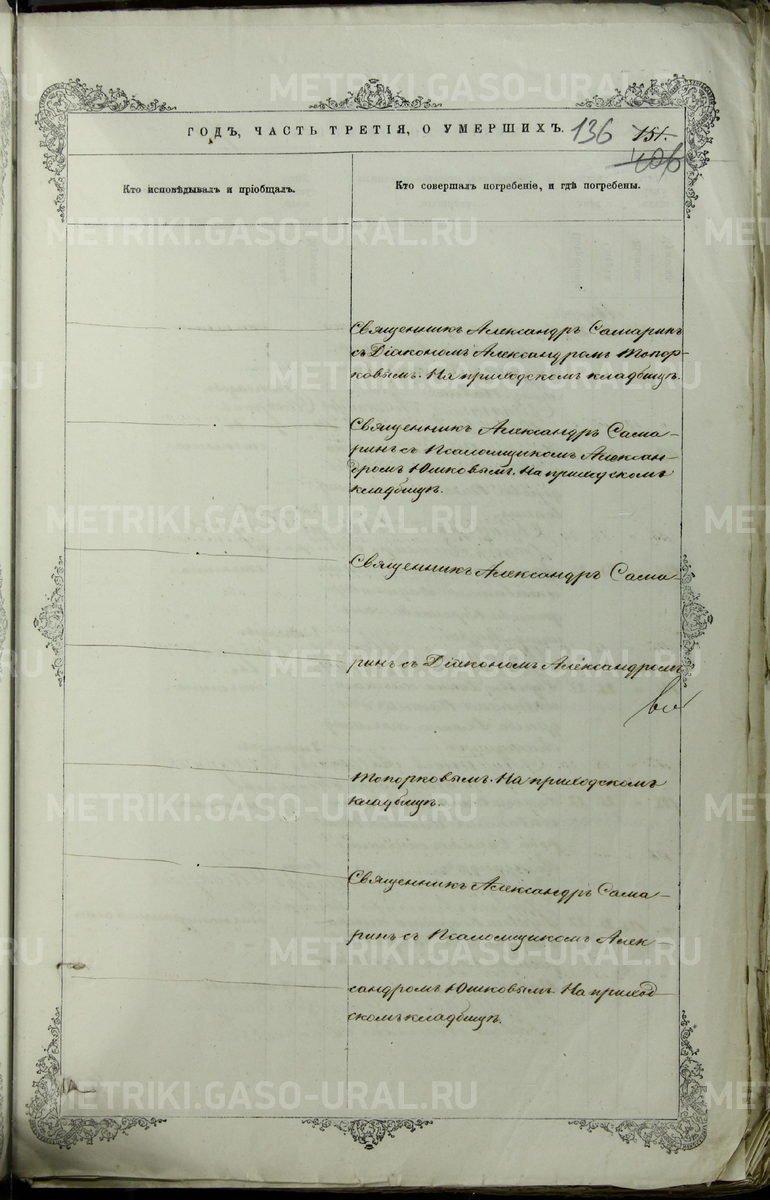 ГОДЪ, ЧАСТЬ ТРЕТІЯ, О УМЕРШИХЪ. 136 151.
Кто исповѣдывалъ и пріобщалъ.
Кто совершалъ погребеніе, и гдѣ погребены.
Священникъ Александръ Самаринъ
съ Діакономъ Александромъ Топор-
ковымъ. На приходскомъ кладбищѣ.
Священникъ Александръ Сама-
ринъ съ Псаломщикомъ Алексан-
дромъ Юшковымъ. На приходскомъ
кладбищѣ.
Священникъ Александръ Сама-
ринъ съ Діакономъ Александромъ
Топорковымъ. На приходскомъ
кладбищѣ.
Священникъ Александръ Сама-
ринъ съ Псаломщикомъ Алек-
сандромъ Юшковымъ. На приход-
скомъ кладбищѣ.
METRIKI.GASO-URAL.RU